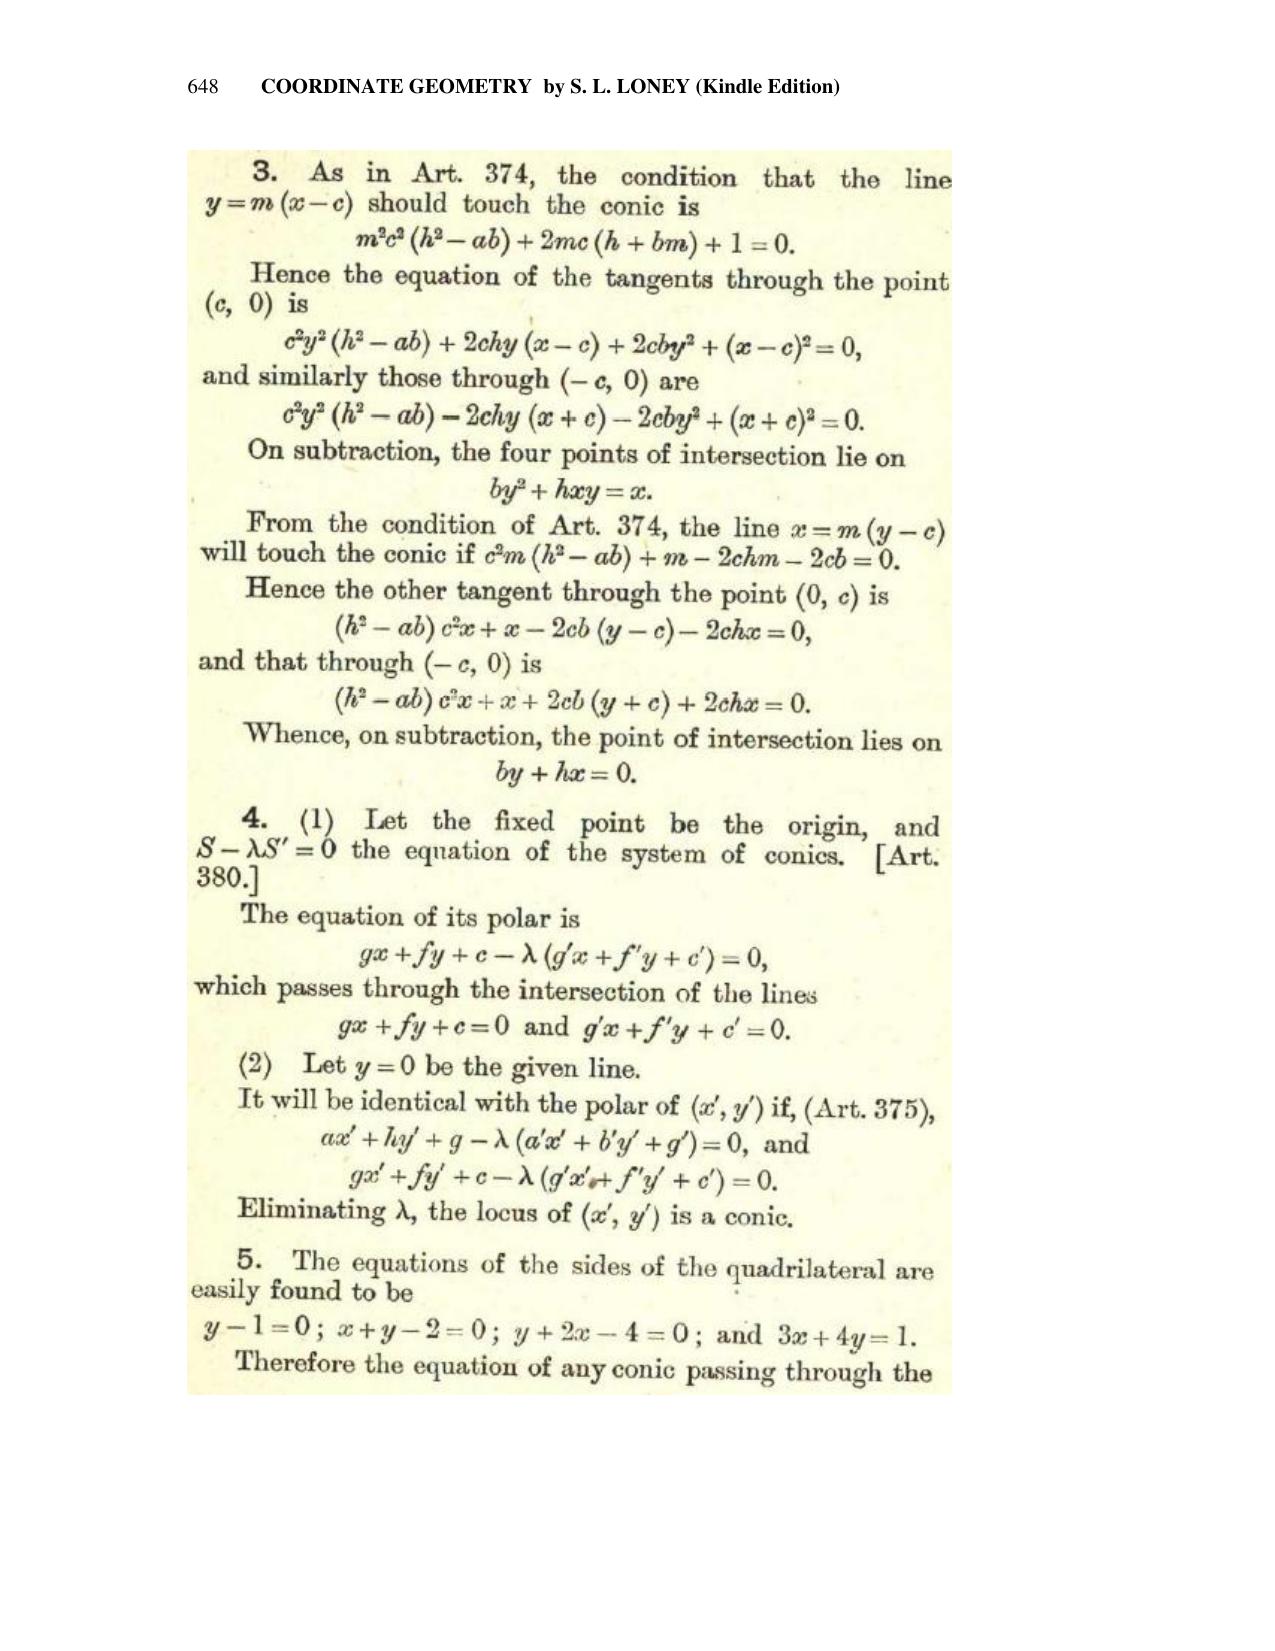 648 COORDINATE GEOMETRY by S. L. LONEY (Kindle Edition)
3. As in Art. 374, the condition that the line
y = m (x – c) should touch the conic is
m²c² (h² – ab) + 2mc (h + bm) + 1 = 0.
Hence the equation of the tangents through the point
(c, 0) is
c²y² (h² – ab) + 2chy (x – c) + 2cby² + (x – c)² = 0,
and similarly those through (– c, 0) are
c²y² (h² – ab) – 2chy (x + c) – 2cby² + (x + c)² = 0.
On subtraction, the four points of intersection lie on
by² + hxy = x.
From the condition of Art. 374, the line x = m (y – c)
will touch the conic if c²m (h² – ab) + m – 2chm – 2cb = 0.
Hence the other tangent through the point (0, c) is
(h² – ab) c²x + x – 2cb (y – c) – 2chx = 0,
and that through (– c, 0) is
(h² – ab) c²x + x + 2cb (y + c) + 2chx = 0.
Whence, on subtraction, the point of intersection lies on
by + hx = 0.
4. (1) Let the fixed point be the origin, and
S – λS′ = 0 the equation of the system of conics. [Art.
380.]
The equation of its polar is
gx + fy + c – λ (g′x + f′y + c′) = 0,
which passes through the intersection of the lines
gx + fy + c = 0 and g′x + f′y + c′ = 0.
(2) Let y = 0 be the given line.
It will be identical with the polar of (x′, y′) if, (Art. 375),
ax′ + hy′ + g – λ (a′x′ + b′y′ + g′) = 0, and
gx′ + fy′ + c – λ (g′x′ + f′y′ + c′) = 0.
Eliminating λ, the locus of (x′, y′) is a conic.
5. The equations of the sides of the quadrilateral are
easily found to be
y – 1 = 0; x + y – 2 = 0; y + 2x – 4 = 0; and 3x + 4y = 1.
Therefore the equation of any conic passing through the